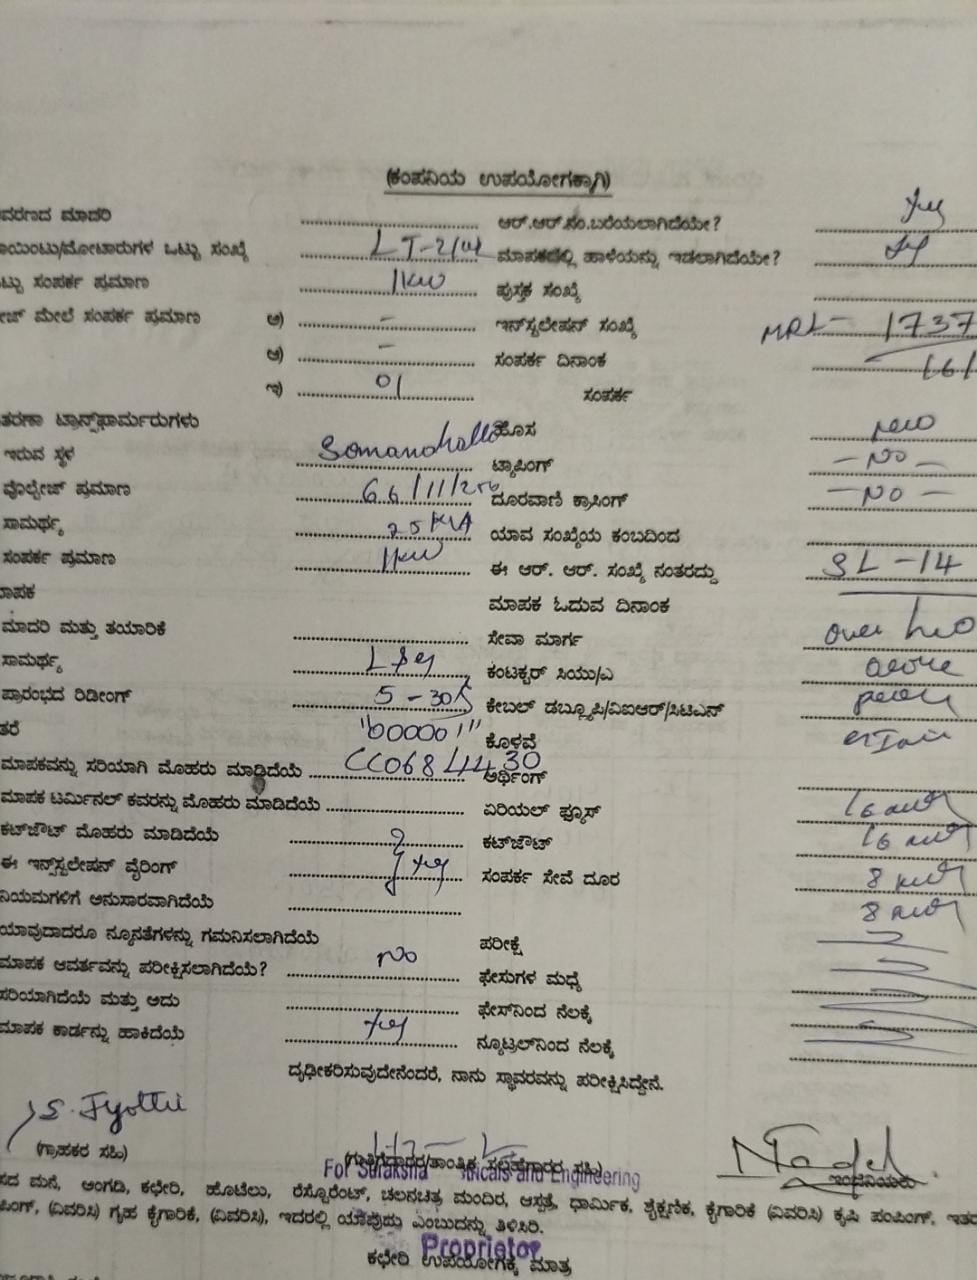 (ಕಂಪನಿಯ ಉಪಯೋಗಕ್ಕಾಗಿ)
ವರಣದ ಮಾದರಿ ಆರ್.ಆರ್.ಸಂ.ಬರೆಯಲಾಗಿದೆಯೇ? yes
ಾಯಿಂಟು/ಮೋಟಾರುಗಳ ಒಟ್ಟು ಸಂಖ್ಯೆ LT-2/ ಮಾಪಕದಲ್ಲಿ ಹಾಳೆಯನ್ನು ಇಡಲಾಗಿದೆಯೇ? yes
ಟ್ಟು ಸಂಪರ್ಕ ಪ್ರಮಾಣ 1kw ಪುಸ್ತಕ ಸಂಖ್ಯೆ
ೇಜ್ ಮೇಲೆ ಸಂಪರ್ಕ ಪ್ರಮಾಣ ಅ) - ಇನ್‌ಸ್ಟಲೇಷನ್ ಸಂಖ್ಯೆ MRL- 1737
ಆ) - ಸಂಪರ್ಕ ದಿನಾಂಕ
ಇ) 01 ಸಂಪರ್ಕ
ತರಣಾ ಟ್ರಾನ್ಸ್‌ಫಾರ್ಮರುಗಳು ಹೊಸ new
ಇರುವ ಸ್ಥಳ Somanahalli ಟ್ಯಾಪಿಂಗ್ - No -
ವೊಲ್ಟೇಜ್ ಪ್ರಮಾಣ 66/11/ ದೂರವಾಣಿ ಕ್ರಾಸಿಂಗ್ - No -
ಸಾಮರ್ಥ್ಯ 25 KVA ಯಾವ ಸಂಖ್ಯೆಯ ಕಂಬದಿಂದ
ಸಂಪರ್ಕ ಪ್ರಮಾಣ 1kw ಈ ಆರ್. ಆರ್. ಸಂಖ್ಯೆ ನಂತರದ್ದು SL-14
ಾಪಕ ಮಾಪಕ ಓದುವ ದಿನಾಂಕ
ಮಾದರಿ ಮತ್ತು ತಯಾರಿಕೆ ಸೇವಾ ಮಾರ್ಗ over
ಸಾಮರ್ಥ್ಯ ಕಂಟಕ್ಟರ್ ಸಿಯು/ಎ
ಪ್ರಾರಂಭದ ರಿಡೀಂಗ್ 5-30 ಕೇಬಲ್ ಡಬ್ಲ್ಯೂಪಿ/ವಿಐಆರ್/ಸಿಟಿಎಸ್
ತರೆ "00001" ಕೊಳವೆ
ಮಾಪಕವನ್ನು ಸರಿಯಾಗಿ ಮೊಹರು ಮಾಡಿದೆಯೆ CC0684430 ಅರ್ಥಿಂಗ್
ಮಾಪಕ ಟರ್ಮಿನಲ್ ಕವರನ್ನು ಮೊಹರು ಮಾಡಿದೆಯೆ ಏರಿಯಲ್ ಫ್ಯೂಸ್ 16
ಕಟ್‌ಔಟ್ ಮೊಹರು ಮಾಡಿದೆಯೆ ಕಟ್‌ಔಟ್ 16
ಈ ಇನ್‌ಸ್ಟಲೇಷನ್ ವೈರಿಂಗ್ yes ಸಂಪರ್ಕ ಸೇವೆ ದೂರ 8
ನಿಯಮಗಳಿಗೆ ಅನುಸಾರವಾಗಿದೆಯೆ 8
ಯಾವುದಾದರೂ ನ್ಯೂನತೆಗಳನ್ನು ಗಮನಿಸಲಾಗಿದೆಯೆ ಪರೀಕ್ಷೆ
ಮಾಪಕ ಆವರ್ತವನ್ನು ಪರೀಕ್ಷಿಸಲಾಗಿದೆಯೆ? No ಫೇಸುಗಳ ಮಧ್ಯೆ
ಸರಿಯಾಗಿದೆಯೆ ಮತ್ತು ಅದು ಫೇಸ್‌ನಿಂದ ನೆಲಕ್ಕೆ
ಮಾಪಕ ಕಾರ್ಡನ್ನು ಹಾಕಿದೆಯೆ yes ನ್ಯೂಟ್ರಲ್‌ನಿಂದ ನೆಲಕ್ಕೆ
ದೃಢೀಕರಿಸುವುದೇನೆಂದರೆ, ನಾನು ಸ್ಥಾವರವನ್ನು ಪರೀಕ್ಷಿಸಿದ್ದೇನೆ.
S. Jyothi
(ಗ್ರಾಹಕರ ಸಹಿ) (ಗುತ್ತಿಗೆದಾರರ/ತಾಂತ್ರಿಕ ಸಲಹೆಗಾರರ ಸಹಿ) ಇಂಜಿನಿಯರು
For Suraksha and Engineering
ಸದ ಮನೆ, ಅಂಗಡಿ, ಕಛೇರಿ, ಹೊಟೆಲು, ರೆಸ್ಟೊರೆಂಟ್, ಚಲನಚಿತ್ರ ಮಂದಿರ, ಆಸ್ಪತ್ರೆ, ಧಾರ್ಮಿಕ, ಶೈಕ್ಷಣಿಕ, ಕೈಗಾರಿಕೆ (ವಿವರಿಸಿ) ಕೃಷಿ ಪಂಪಿಂಗ್, ಇತರ
ಪಿಂಗ್, (ವಿವರಿಸಿ) ಗೃಹ ಕೈಗಾರಿಕೆ, (ವಿವರಿಸಿ), ಇದರಲ್ಲಿ ಯಾವುದು ಎಂಬುದನ್ನು ತಿಳಿಸಿರಿ.
Proprietor
ಕಛೇರಿ ಉಪಯೋಗಕ್ಕೆ ಮಾತ್ರ